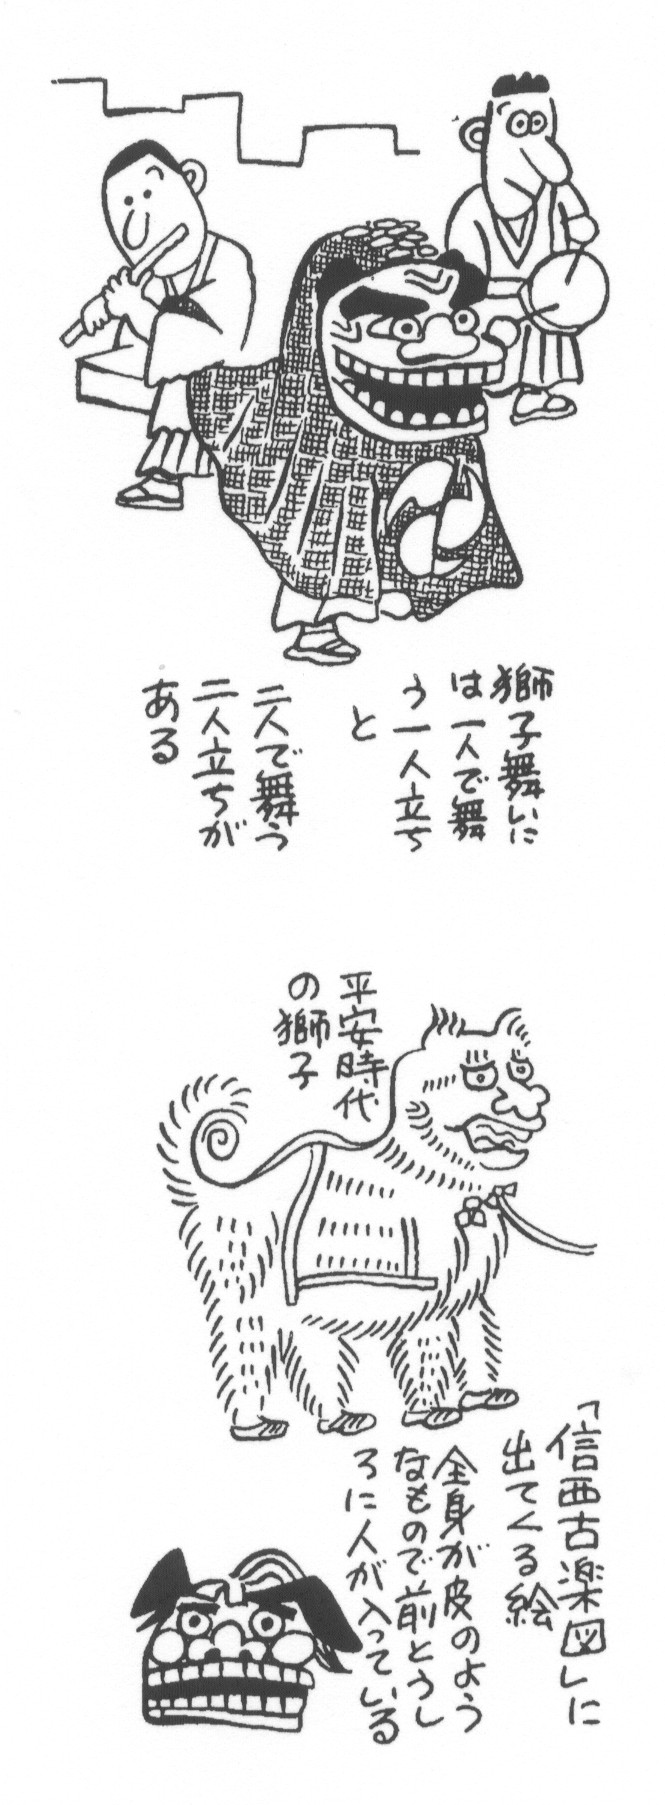 獅子舞いに
は一人で舞
う一人立ち
と
二人で舞う
二人立ちが
ある
平安時代
の獅子
「信西古楽図」に
出てくる絵
全身が皮のよう
なもので前とうし
ろに人が入っている